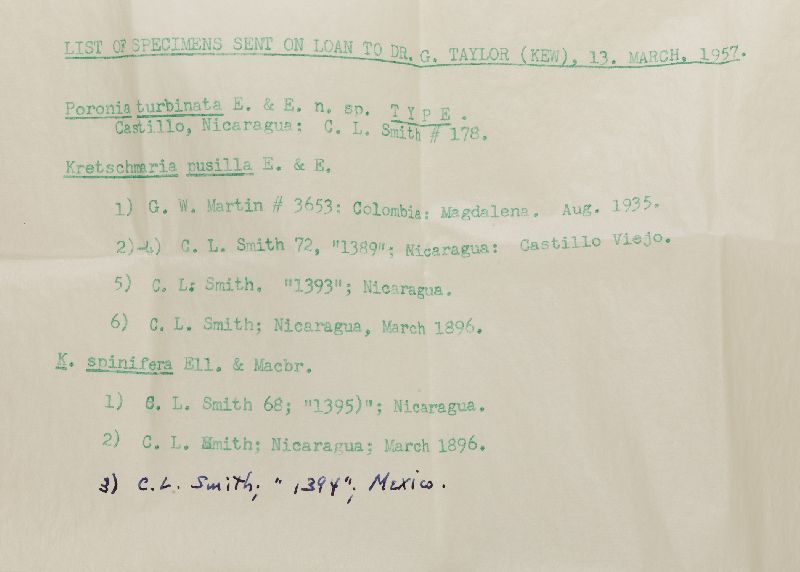 LIST OF SPECIMENS SENT ON LOAN TO DR. G. TAYLOR (KEW), 13. MARCH. 1957.
Poronia turbinata E. & E. n. sp. T Y P E .
Castillo, Nicaragua: C. L. Smith # 178.
Kretschmaria pusilla E. & E.
1) G. W. Martin # 3653: Colombia: Magdalena. Aug. 1935.
2)-4) C. L. Smith 72, "1389"; Nicaragua: Castillo Viejo.
5) C. L. Smith. "1393"; Nicaragua.
6) C. L. Smith; Nicaragua, March 1896.
K. spinifera Ell. & Macbr.
1) C. L. Smith 68; "1395)"; Nicaragua.
2) C. L. Smith; Nicaragua; March 1896.
3) C.L. Smith; "1394"; Mexico.